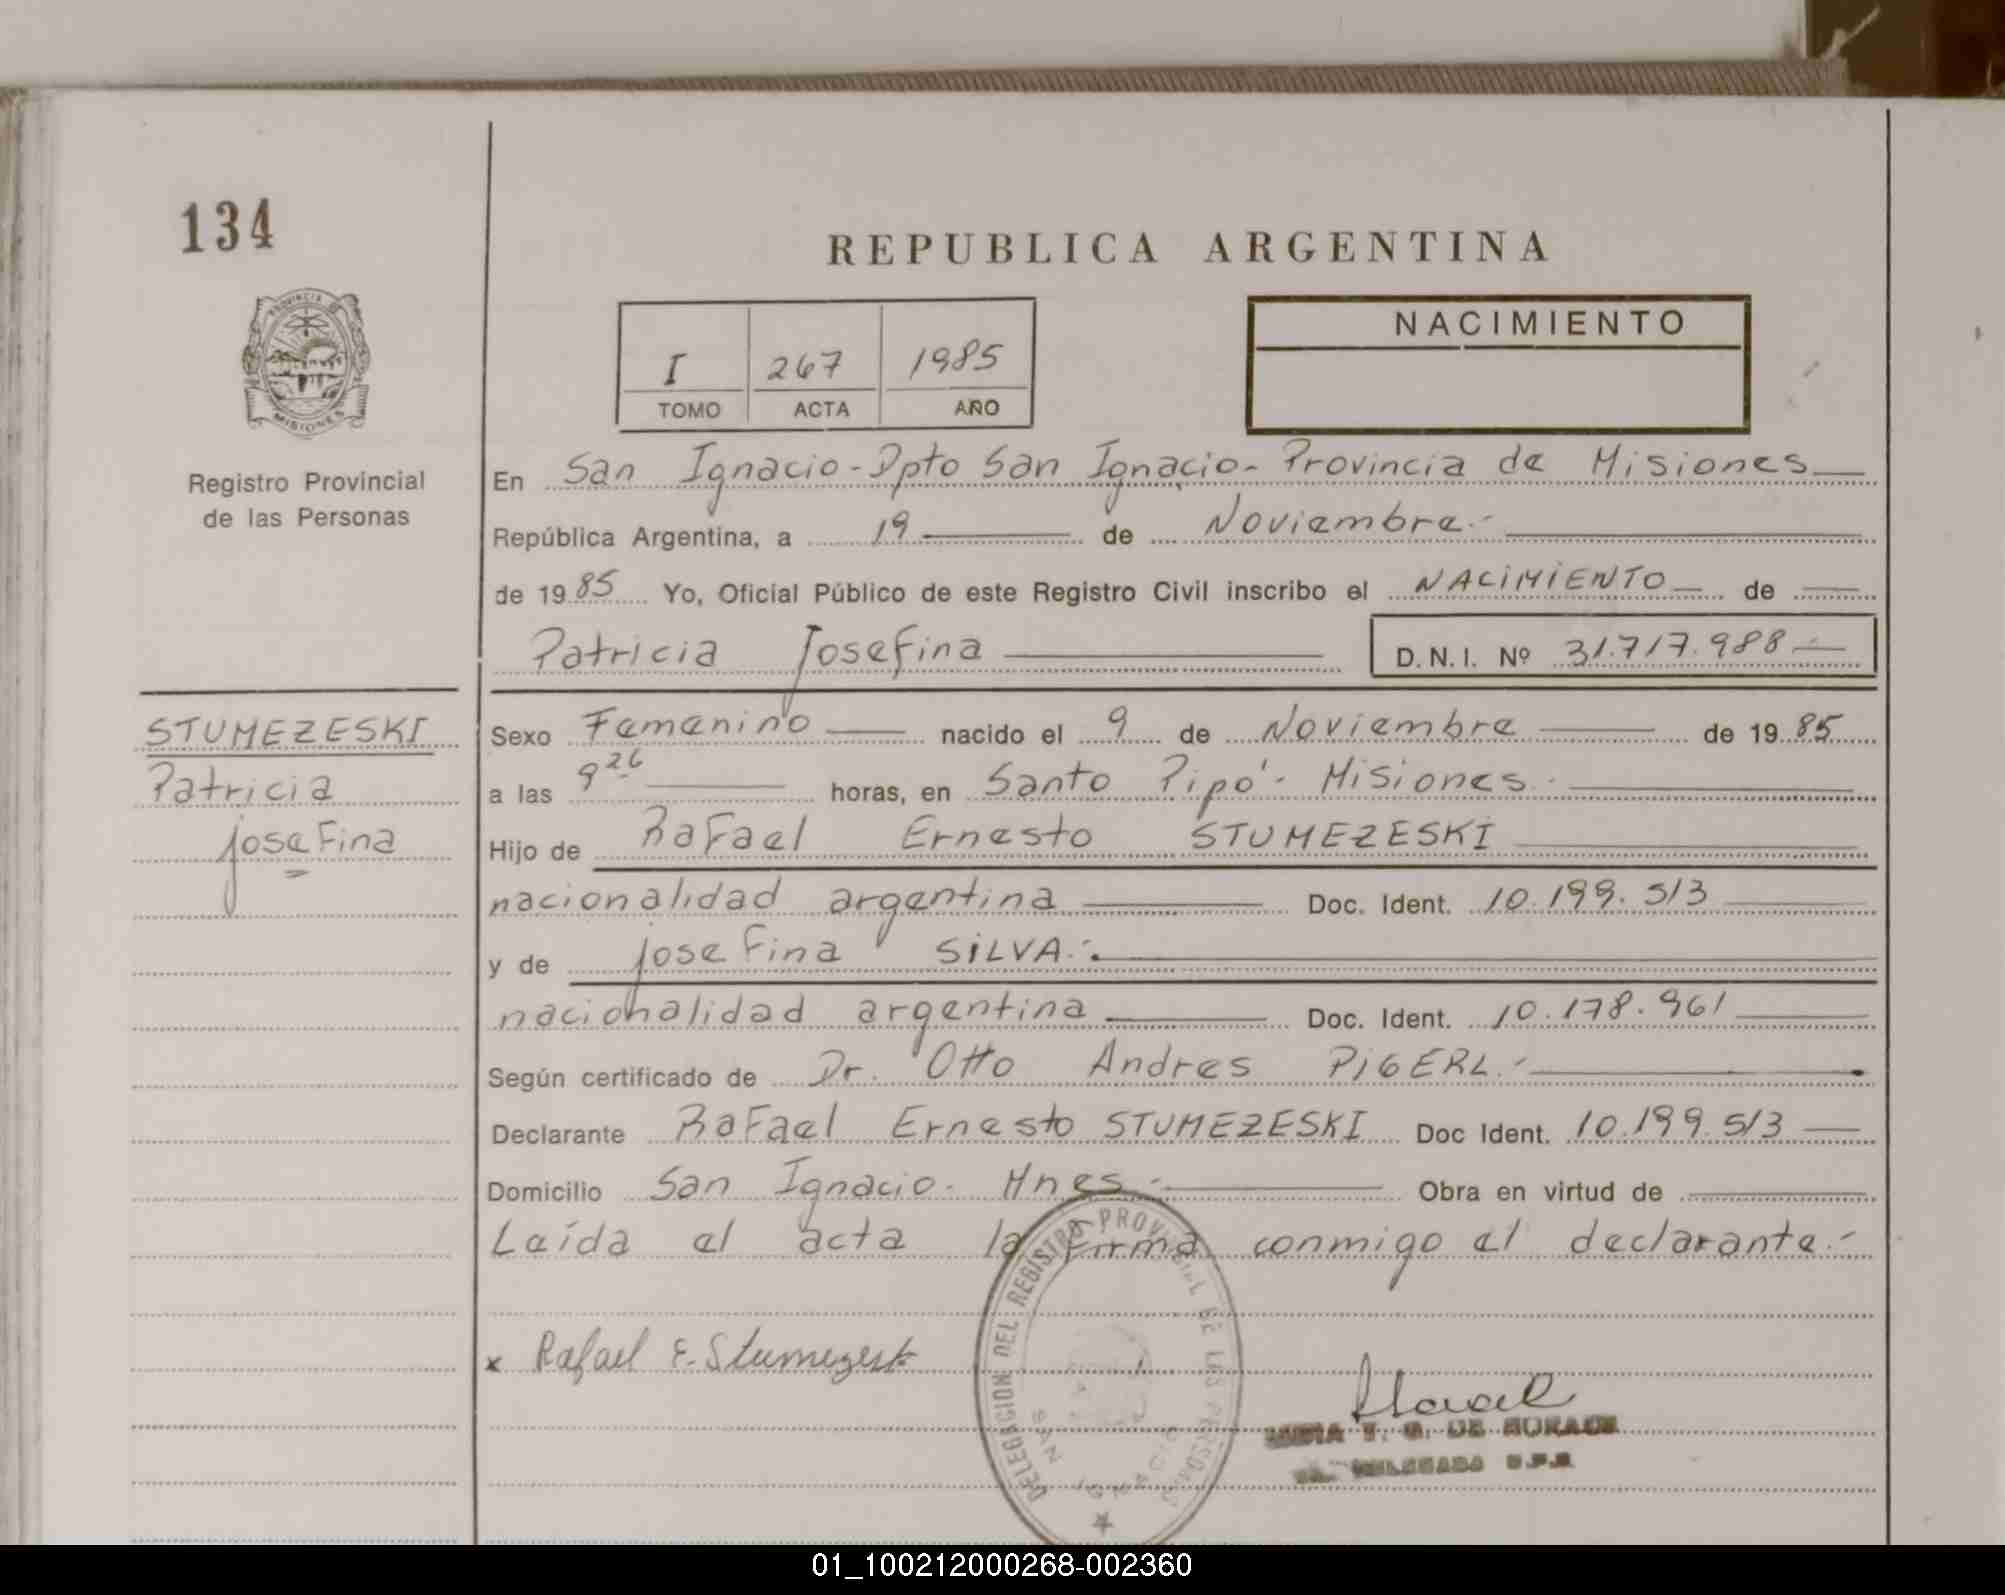 134
REPUBLICA ARGENTINA
PROVINCIA DE
MISIONES
Registro Provincial
de las Personas
I 267 1985
TOMO ACTA AÑO
NACIMIENTO
En San Ignacio - Dpto San Ignacio - Provincia de Misiones
República Argentina, a 19 de Noviembre.-
de 19 85 Yo, Oficial Público de este Registro Civil inscribo el NACIMIENTO de
Patricia Josefina D.N.I. Nº 31.717.988.-
STUMEZESKI
Patricia
Josefina
Sexo Femenino nacido el 9 de Noviembre de 19 85
a las 9 26 horas, en Santo Pipó - Misiones.
Hijo de Rafael Ernesto STUMEZESKI
nacionalidad argentina Doc. Ident. 10.199.513
y de Josefina SILVA.-
nacionalidad argentina Doc. Ident. 10.178.961
Según certificado de Dr. Otto Andres PIGERL.-
Declarante Rafael Ernesto STUMEZESKI Doc Ident. 10.199.513
Domicilio San Ignacio - Mnes.- Obra en virtud de
Leída el acta la firma conmigo el declarante.-
x Rafael E. Stumezeski
DELEGACION DEL REGISTRO PROVINCIAL DE LAS PERSONAS
SAN IGNACIO
T. G. DE
DELEGADA
01_100212000268-002360